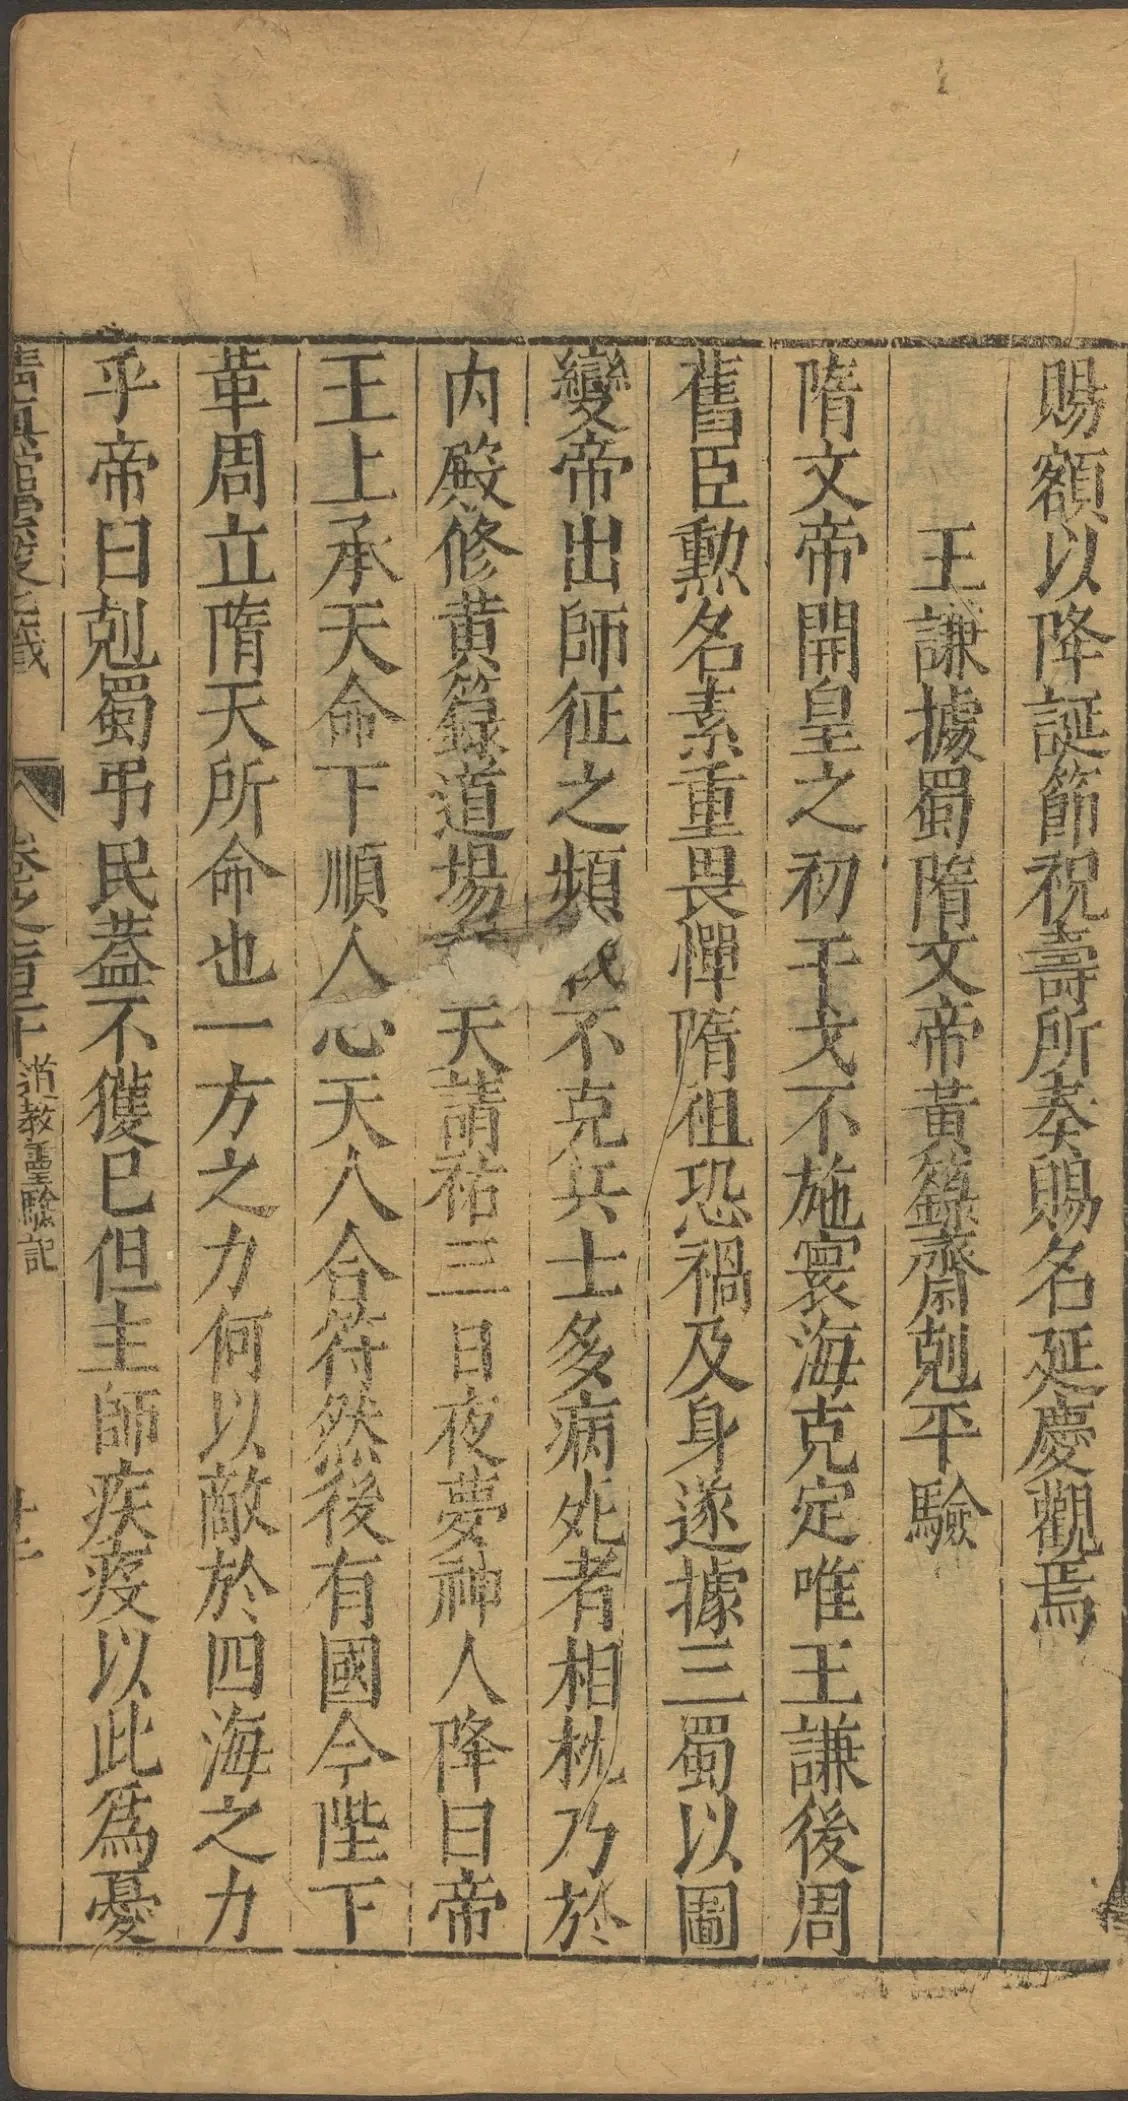 賜額以降誕節祝壽所奏賜名延慶觀焉
王謙據蜀隋文帝黃籙齋剋平驗
隋文帝開皇之初干戈不施寰海克定唯王謙後周
舊臣勲名素重畏憚隋祖恐禍及身遂據三蜀以圖
變帝出師征之頻不克兵士多病死者相枕乃於
内殿修黄籙道場天請祐三日夜夢神人降曰帝
王上承天命下順人心天人合符然後有國今陛下
革周立隋天所命也一方之力何以敵於四海之力
乎帝曰剋蜀弔民蓋不獲已但主師疾疫以此爲憂
道教靈驗記